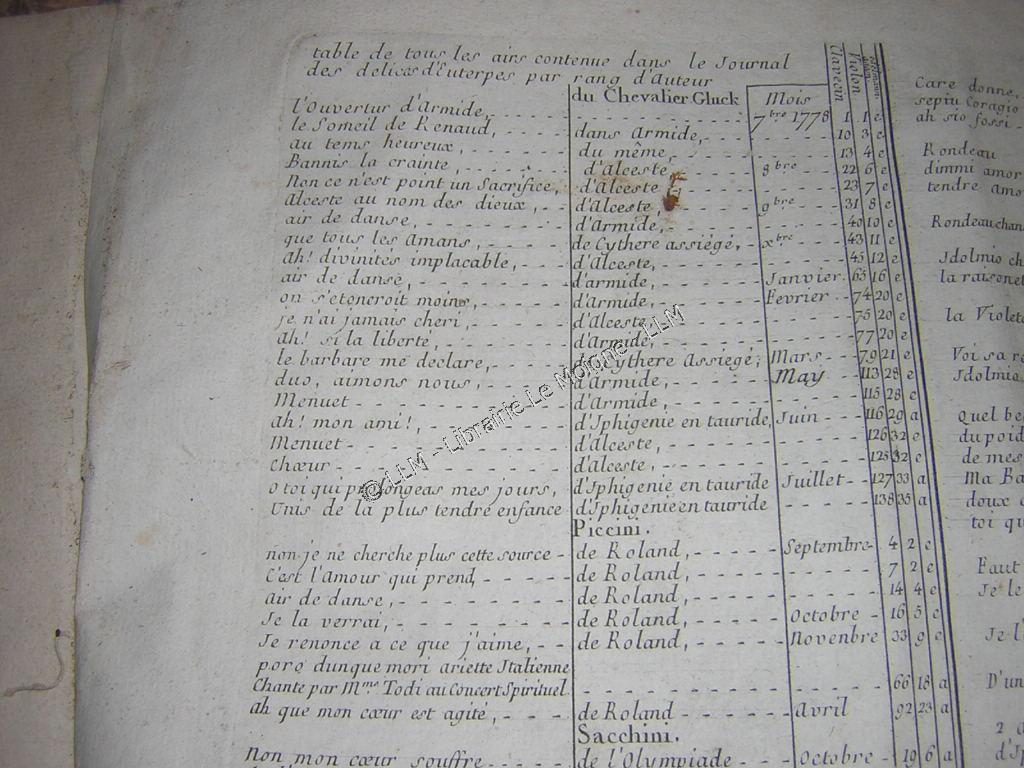 table de tous les airs contenue dans le Journal
des delises d'Euterpes par rang d'Auteur
Clavecin Violon
du Chevalier Gluck Mois
l'Ouvertur d'Armide, 7bre 1778 1 1 e
le Someil de Renaud, dans Armide, 10 3 e
au tems heureux, du même, 13 4 e
Bannis la crainte, d'Alceste 8bre 22 6 e
Non ce n'est point un Sacrifice, d'Alceste 23 7 e
Alceste au nom des dieux, d'Alceste, 9bre 31 8 e
air de danse, d'Armide, 40 10 e
que tous les Amans, de Cythere assiégé, xbre 43 11 e
Ah! divinites implacable, d'Alceste, 45 12 e
air de danse, d'armide, Janvier 65 16 e
on s'etoneroit moins, d'Armide, Fevrier 74 20 e
je n'ai jamais cheri, d'Alceste 75 20 e
Ah! si la liberté, d'Armide, 77 20 e
le barbare me declare, de Cythere Assiegé, Mars 79 21 e
duo, aimons nous, d'Armide, May 113 28 e
Menuet d'Armide, 115 28 e
Ah! mon ami!, d'Iphigenie en tauride, Juin 116 29 a
Menuet d'Alceste, 126 32 e
Chœur d'alceste, 125 32 e
o toi qui prolongeas mes jours, d'Iphigenie en tauride Juillet 127 33 a
Unis de la plus tendre enfance d'Iphigenie en tauride 138 35 a
Piccini.
non je ne cherche plus cette source de Roland, Septembre 4 2 e
C'est l'Amour qui prend, de Roland, 7 2 e
air de danse, de Roland, 14 4 e
Je la verrai, de Roland, Octobre 16 5 e
Je renonce a ce que j'aime, de Roland, Novenbre 33 9 e
poro dunque mori ariette Italienne
Chante par Mme Todi au Concert Spirituel 66 18 a
Ah que mon cœur est agité, de Roland Avril 92 23 a
Sacchini.
Non mon cœur souffre de l'Olympiade Octobre 19 6 a
Care donne,
sepiu Coragio
ah sio fossi
Rondeau
dimmi amor
tendre Amo
Rondeau chan
Idolmio ch
la raisonet
la Violet
Voi sa re
Idolmio
Quel be
du poid
de mes
Ma Ba
doux
toi qu
Faut
Je le
Je l'
D'un
2
d'I
©LLM - Librairie Le Moigne - LLM